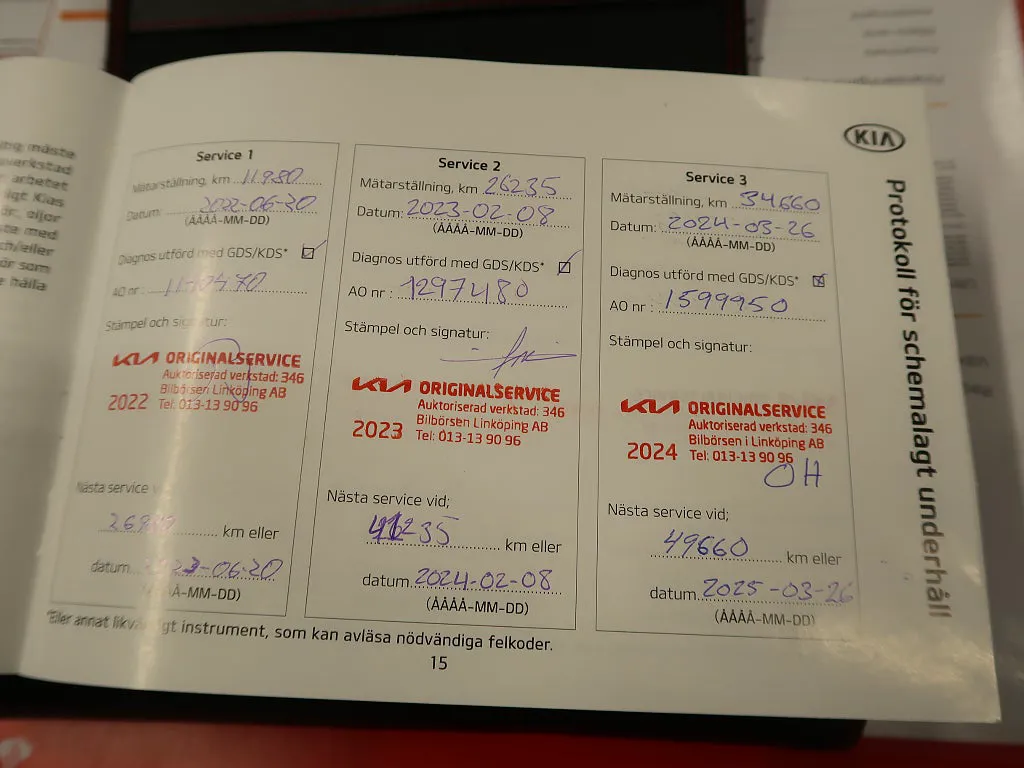 KIA
Protokoll för schemalagt underhåll
ng måste
verkstad
arbetet
ligt Kias
ör, oljor
med
ch/eller
för som
hålla
Service 1
Mätarställning, km 11980
Datum: 2022-06-30
(ÅÅÅÅ-MM-DD)
Diagnos utförd med GDS/KDS*
AO nr :
Stämpel och signatur:
KIA ORIGINALSERVICE
Auktoriserad verkstad: 346
Bilbörsen Linköping AB
2022 Tel: 013-13 90 96
Nästa service
km eller
datum -06-20
(ÅÅÅÅ-MM-DD)
Service 2
Mätarställning, km 26235
Datum: 2023-02-08
(ÅÅÅÅ-MM-DD)
Diagnos utförd med GDS/KDS*
AO nr : 1297480
Stämpel och signatur:
KIA ORIGINALSERVICE
Auktoriserad verkstad: 346
Bilbörsen Linköping AB
2023 Tel: 013-13 90 96
Nästa service vid;
41235 km eller
datum. 2024-02-08
(ÅÅÅÅ-MM-DD)
Service 3
Mätarställning, km 34660
Datum: 2024-03-26
(ÅÅÅÅ-MM-DD)
Diagnos utförd med GDS/KDS*
AO nr : 1599950
Stämpel och signatur:
KIA ORIGINALSERVICE
Auktoriserad verkstad: 346
Bilbörsen i Linköping AB
2024 Tel: 013-13 90 96
OH
Nästa service vid;
49660 km eller
datum. 2025-03-26
(ÅÅÅÅ-MM-DD)
*Eller annat instrument, som kan avläsa nödvändiga felkoder.
15